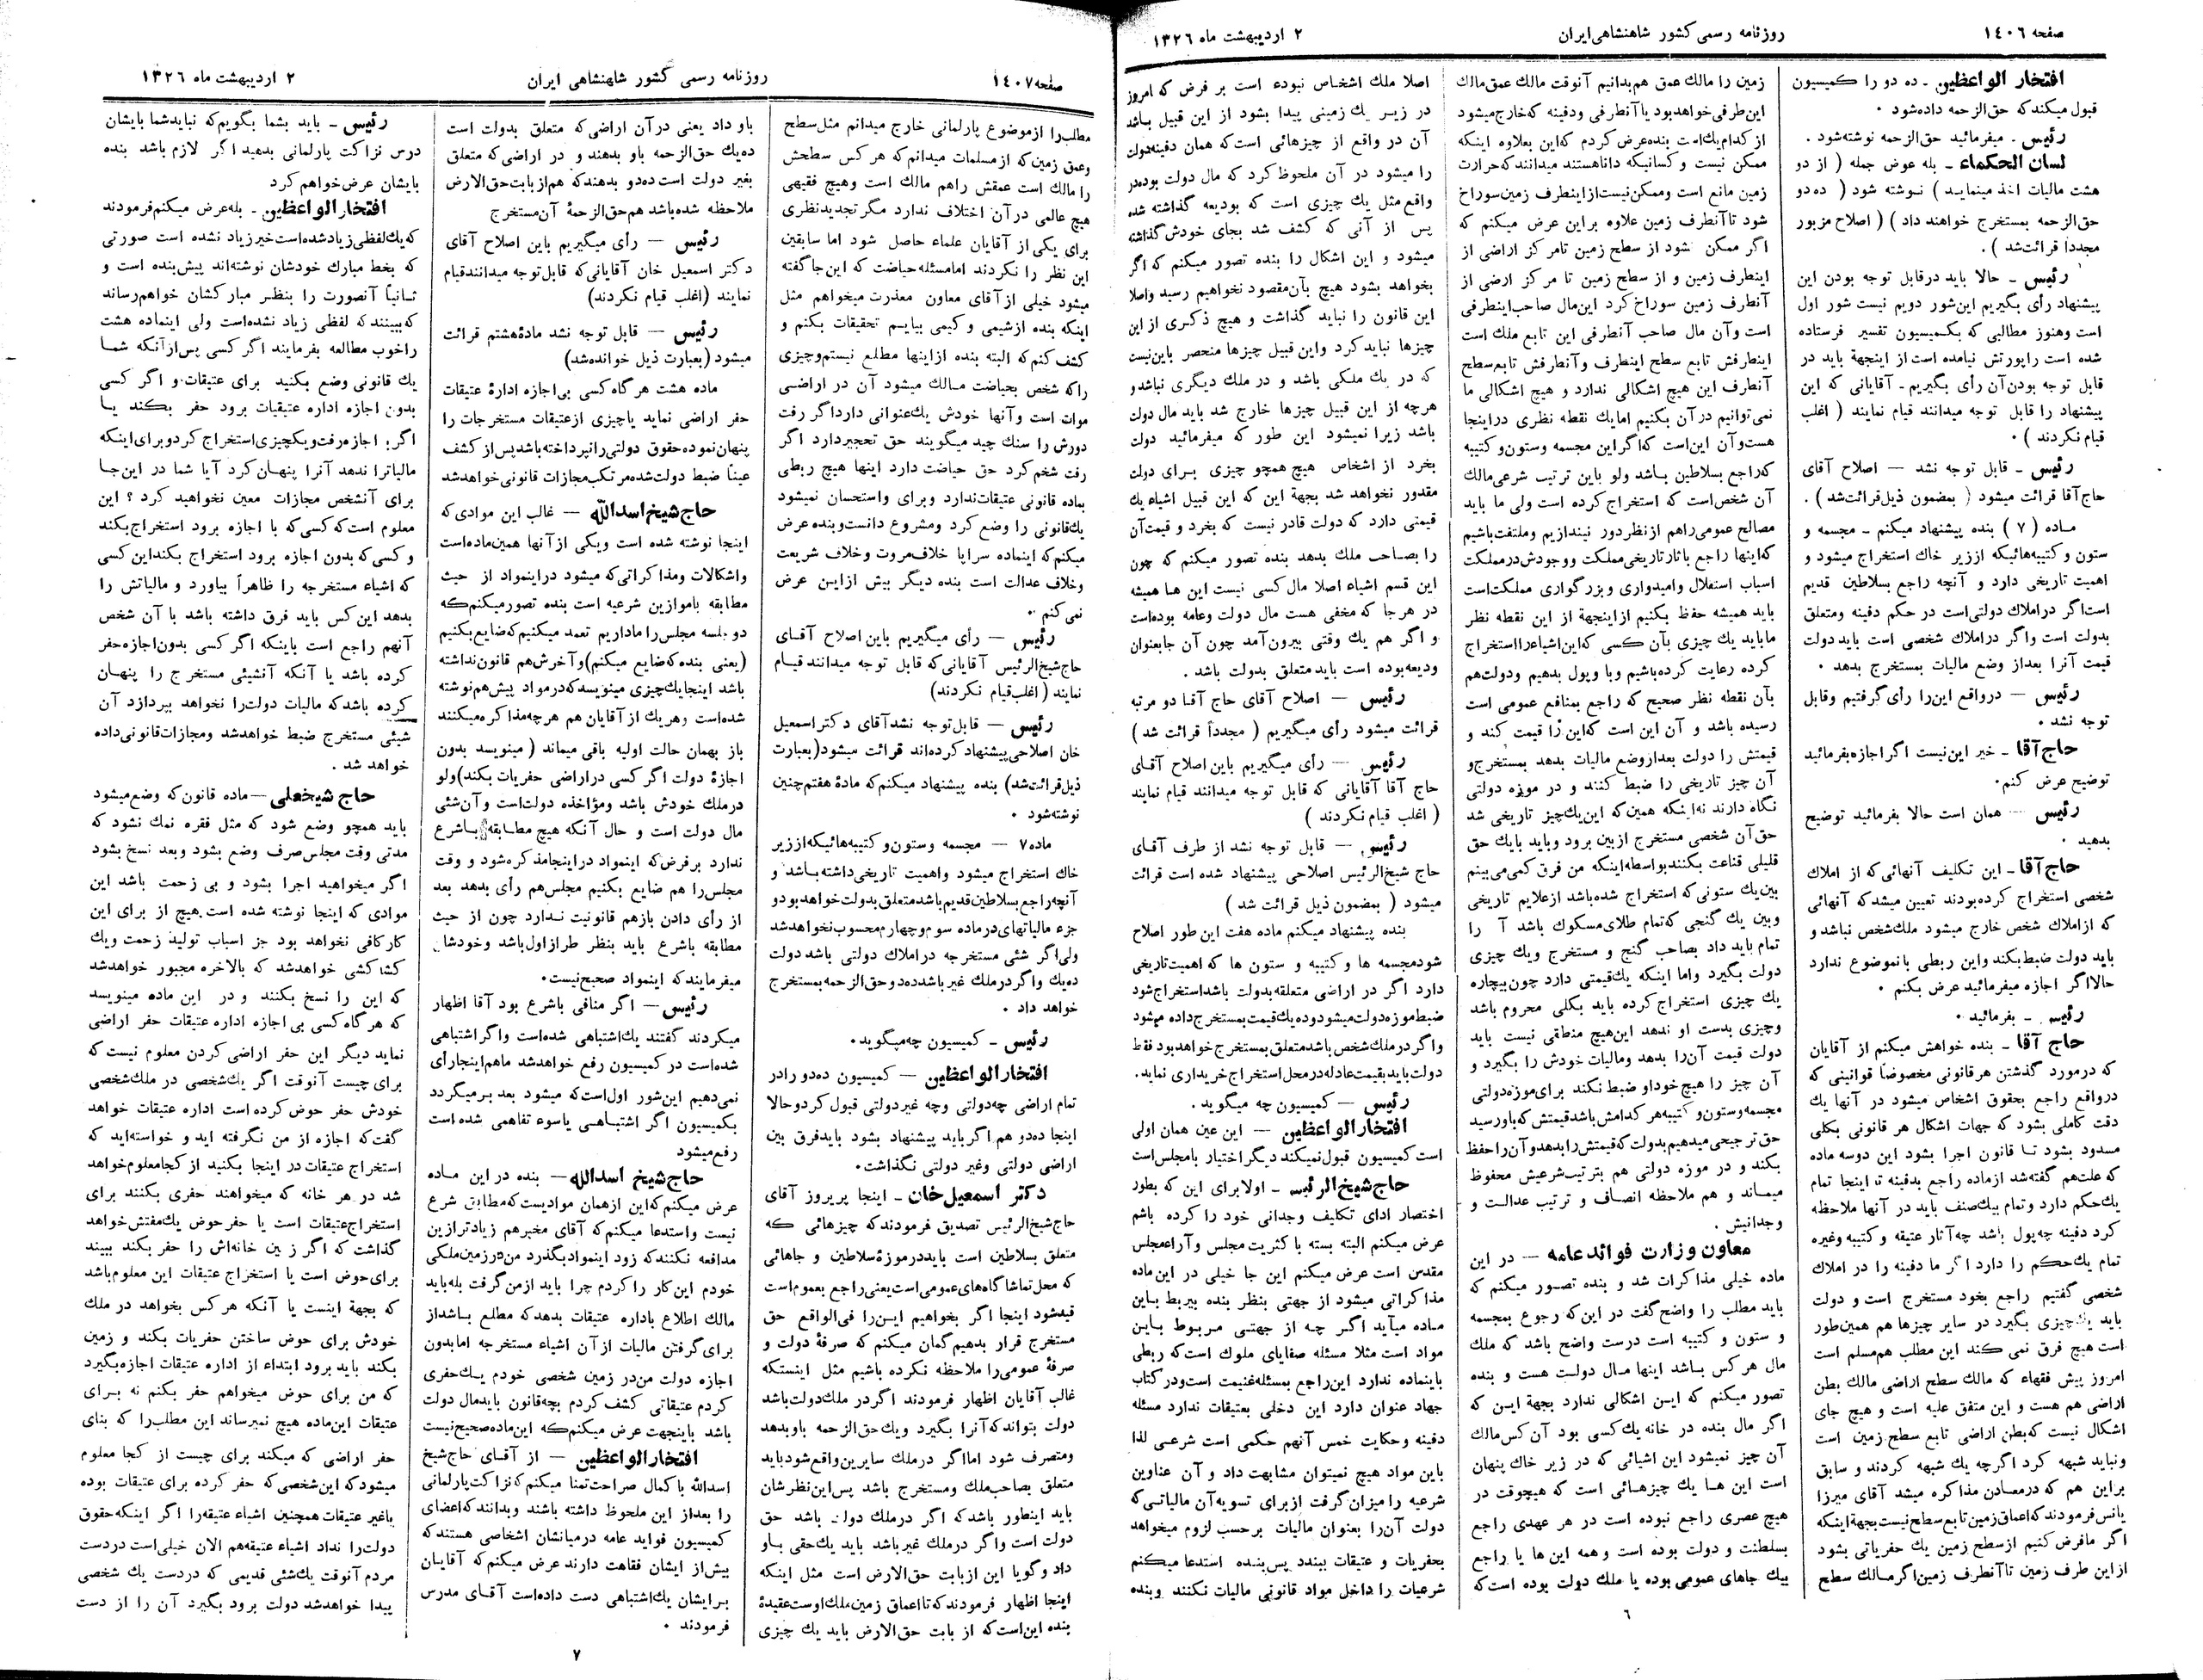 صفحه ۱٤۰٦
روزنامه رسمی کشور شاهنشاهی ایران
۲ اردیبهشت ماه ۱۳۲٦
افتخار الواعظین ـ ده دو را کمیسیون
قبول میکند که حق‌الزحمه داده شود ۰
رئیس ـ میفرمائید حق‌الزحمه نوشته شود .
لسان الحکماء ـ بله عوض جمله ( از دو
هشت مالیات اخذ مینماید ) نوشته شود ( ده دو
حق‌الزحمه بمستخرج خواهند داد ) ( اصلاح مزبور
مجدداً قرائت شد ) .
رئیس ـ حالا باید در قابل توجه بودن این
پیشنهاد رأی بگیریم این شور دویم نیست شور اول
است و هنوز مطالبی که بکمیسیون تفسیر فرستاده
شده است راپورتش نیامده است از اینجهة باید در
قابل توجه بودن آن رأی بگیریم ـ آقایانی که این
پیشنهاد را قابل توجه میدانند قیام نمایند ( اغلب
قیام نکردند ) ۰
رئیس ـ قابل توجه نشد — اصلاح آقای
حاج آقا قرائت میشود ( بمضمون ذیل قرائت شد ) .
ماده ( ۷ ) بنده پیشنهاد میکنم ـ مجسمه و
ستون و کتیبه‌هائیکه از زیر خاك استخراج میشود و
اهمیت تاریخی دارد و آنچه راجع بسلاطین قدیم
است اگر در املاك دولتی است در حکم دفینه و متعلق
بدولت است و اگر در املاك شخصی است باید دولت
قیمت آنرا بعد از وضع مالیات بمستخرج بدهد ۰
رئیس — در واقع این را رأی گرفتیم و قابل
توجه نشد ۰
حاج آقا ـ خیر این نیست اگر اجازه بفرمائید
توضیح عرض کنم۰
رئیس — همان است حالا بفرمائید توضیح
بدهید ۰
حاج آقا ـ این تکلیف آنهائی که از املاك
شخصی استخراج کرده بودند تعیین میشد که آنهائی
که از املاك شخص خارج میشود ملك شخص نباشد و
باید دولت ضبط بکند و این ربطی باموضوع ندارد
حالا اگر اجازه میفرمائید عرض بکنم ۰
رئیس ـ بفرمائید ۰
حاج آقا ـ بنده خواهش میکنم از آقایان
که در مورد گذشتن هر قانونی مخصوصاً قوانینی که
در واقع راجع بحقوق اشخاص میشود در آنها یك
دقت کاملی بشود که جهات اشکال هر قانونی بکلی
مسدود بشود تا قانون اجرا بشود این دو سه ماده
که علت هم گفته شد از ماده راجع بدفینه تا اینجا تمام
یك حکم دارد و تمام بیك صنف باید در آنها ملاحظه
کرد دفینه چه پول باشد چه آثار عتیقه و کتیبه و غیره
تمام یك حکم را دارد اگر ما دفینه را در املاك
شخصی گفتیم راجع بخود مستخرج است و دولت
باید یك چیزی بگیرد در سایر چیزها هم همین طور
است هیچ فرق نمی کند این مطلب هم مسلم است
امروز پیش فقهاء که مالك سطح اراضی مالك بطن
اراضی هم هست و این متفق علیه است و هیچ جای
اشکال نیست که بطن اراضی تابع سطح زمین است
و نباید شبهه کرد اگر چه یك شبهه کردند و سابق
براین هم که در معادن مذاکره میشد آقای میرزا
یانس فرمودند که اعماق زمین تابع سطح نیست بجهة اینکه
اگر ما فرض کنیم از سطح زمین یك حفریاتی بشود
از این طرف زمین تا آنطرف زمین اگر مالك سطح
زمین را مالك عمق هم بدانیم آنوقت مالك عمق مالك
این طرفی خواهد بود یا آنطرفی و دفینه که خارج میشود
از کدام یك است بنده عرض کردم که این بعلاوه اینکه
ممکن نیست و کسانیکه دانا هستند میدانند که حرارت
زمین مانع است و ممکن نیست از اینطرف زمین سوراخ
شود تا آنطرف زمین علاوه بر این عرض میکنم که
اگر ممکن شود از سطح زمین تا مرکز اراضی از
اینطرف زمین و از سطح زمین تا مرکز ارضی از
آنطرف زمین سوراخ کرد این مال صاحب اینطرفی
است و آن مال صاحب آنطرفی این تابع ملك است
اینطرفش تابع سطح اینطرف و آنطرفش تابع سطح
آنطرف این هیچ اشکالی ندارد و هیچ اشکالی ما
نمی توانیم در آن بکنیم اما یك نقطه نظری در اینجا
هست و آن این است که اگر این مجسمه و ستون و کتیبه
که راجع بسلاطین باشد ولو باین ترتیب شرعی مالك
آن شخص است که استخراج کرده است ولی ما باید
مصالح عمومی را هم از نظر دور نیندازیم و ملتفت باشیم
که اینها راجع باثار تاریخی مملکت و وجودش در مملکت
اسباب استقلال و امیدواری و بزرگواری مملکت است
باید همیشه حفظ بکنیم از اینجهة از این نقطه نظر
ما باید یك چیزی بآن کسی که این اشیاء را استخراج
کرده رعایت کرده باشیم و با و پول بدهیم و دولت هم
بآن نقطه نظر صحیح که راجع بمنافع عمومی است
رسیده باشد و آن این است که این را قیمت کند و
قیمتش را دولت بعد از وضع مالیات بدهد بمستخرج و
آن چیز تاریخی را ضبط کنند و در موزه دولتی
نگاه دارند نه اینکه همین که این یك چیز تاریخی شد
حق آن شخصی مستخرج از بین برود و باید بایك حق
قلیلی قناعت بکنند بواسطه اینکه من فرق کمی می بینم
بین یك ستونی که استخراج شده باشد از علایم تاریخی
و بین یك گنجی که تمام طلای مسکوك باشد را
تمام باید داد بصاحب گنج و مستخرج و یك چیزی
دولت بگیرد و اما اینکه یك قیمتی دارد چون بیچاره
یك چیزی استخراج کرده باید بکلی محروم باشد
و چیزی بدست او ندهد این هیچ منطقی نیست باید
دولت قیمت آن را بدهد و مالیات خودش را بگیرد و
آن چیز را هیچ خود او ضبط نکند برای موزه دولتی
مجسمه و ستون و کتیبه هر کدامش باشد قیمتش که باو رسید
حق ترجیحی میدهیم بدولت که قیمتش را بدهد و آن را حفظ
بکند و در موزه دولتی هم بترتیب شرعیش محفوظ
میماند و هم ملاحظه انصاف و ترتیب عدالت و
وجدانیش .
معاون وزارت فوائد عامه — در این
ماده خیلی مذاکرات شد و بنده تصور میکنم که
باید مطلب را واضح گفت در این که رجوع بمجسمه
و ستون و کتیبه است درست واضح باشد که ملك
مال هر کس باشد اینها مال دولت هست و بنده
تصور میکنم که این اشکالی ندارد بجهة این که
اگر مال بنده در خانه یك کسی بود آن کس مالك
آن چیز نمیشود این اشیائی که در زیر خاك پنهان
است این ها یك چیزهائی است که هیچوقت در
هیچ عصری راجع نبوده است در هر عهدی راجع
بسلطنت و دولت بوده است و همه این ها یا راجع
بیك جاهای عمومی بوده یا ملك دولت بوده است که
اصلا ملك اشخاص نبوده است بر فرض که امروز
در زیر یك زمینی پیدا بشود از این قبیل باشد
آن در واقع از چیزهائی است که همان دفینه دولت
را میشود در آن ملحوظ کرد که مال دولت بوده در
واقع مثل یك چیزی است که بودیعه گذاشته شده
پس از آنی که کشف شد بجای خودش گذاشته
میشود و این اشکال را بنده تصور میکنم که اگر
بخواهد بشود هیچ بآن مقصود نخواهیم رسید و اصلا
این قانون را نباید گذاشت و هیچ ذکری از این
چیزها نباید کرد و این قبیل چیزها منحصر باین نیست
که در یك ملکی باشد و در ملك دیگری نباشد و
هرچه از این قبیل چیزها خارج شد باید مال دولت
باشد زیرا نمیشود این طور که میفرمائید دولت
بخرد از اشخاص هیچ همچو چیزی برای دولت
مقدور نخواهد شد بجهة این که این قبیل اشیاء یك
قیمتی دارد که دولت قادر نیست که بخرد و قیمت آن
را بصاحب ملك بدهد بنده تصور میکنم که چون
این قسم اشیاء اصلا مال کسی نیست این ها همیشه
در هر جا که مخفی هست مال دولت و عامه بوده است
و اگر هم یك وقتی بیرون آمد چون آن جا بعنوان
ودیعه بوده است باید متعلق بدولت باشد .
رئیس — اصلاح آقای حاج آقا دو مرتبه
قرائت میشود رأی میگیریم ( مجدداً قرائت شد )
رئیس — رأی میگیریم باین اصلاح آقای
حاج آقا آقایانی که قابل توجه میدانند قیام نمایند
( اغلب قیام نکردند )
رئیس — قابل توجه نشد از طرف آقای
حاج شیخ الرئیس اصلاحی پیشنهاد شده است قرائت
میشود ( بمضمون ذیل قرائت شد )
بنده پیشنهاد میکنم ماده هفت این طور اصلاح
شود مجسمه ها و کتیبه و ستون ها که اهمیت تاریخی
دارد اگر در اراضی متعلقه بدولت باشد استخراج شود
ضبط موزه دولت میشود و ده یك قیمت بمستخرج داده میشود
و اگر در ملك شخص باشد متعلق بمستخرج خواهد بود فقط
دولت باید بقیمت عادله در محل استخراج خریداری نماید.
رئیس — کمیسیون چه میگوید .
افتخار الواعظین — این عین همان اولی
است کمیسیون قبول نمیکند دیگر اختیار با مجلس است
حاج شیخ الرئیس ـ اولا برای این که بطور
اختصار ادای تکلیف وجدانی خود را کرده باشم
عرض میکنم البته بسته با کثریت مجلس و آراء مجلس
مقدس است عرض میکنم این جا خیلی در این ماده
مذاکراتی میشود از جهتی بنظر بنده بیربط باین
ماده میآید اگر چه از جهتی مربوط باین
مواد است مثلا مسئله صفایای ملوك است که ربطی
باینماده ندارد این راجع بمسئله غنیمت است و در کتاب
جهاد عنوان دارد این دخلی بعتیقات ندارد مسئله
دفینه و حکایت خمس آنهم حکمی است شرعی لذا
باین مواد هیچ نمیتوان مشابهت داد و آن عناوین
شرعیه را میزان گرفت از برای تسویه آن مالیاتی که
دولت آن را بعنوان مالیات بر حسب لزوم میخواهد
بحفریات و عتیقات ببندد پس بنده استدعا میکنم
شرعیات را داخل مواد قانونی مالیات نکنند و بنده
٦
صفحه ۱٤۰۷
روزنامه رسمی کشور شاهنشاهی ایران
۲ اردیبهشت ماه ۱۳۲٦
مطلب را از موضوع پارلمانی خارج میدانم مثل سطح
و عمق زمین که از مسلمات میدانم که هر کس سطحش
را مالك است عمقش را هم مالك است و هیچ فقیهی
هیچ عالمی در آن اختلاف ندارد مگر تجدید نظری
برای یکی از آقایان علماء حاصل شود اما سابقین
این نظر را نکردند اما مسئله حیاضت که این جا گفته
میشود خیلی از آقای معاون معذرت میخواهم مثل
اینکه بنده از شیمی و کیمی بیایم تحقیقات بکنم و
کشف کنم که البته بنده از اینها مطلع نیستم و چیزی
را که شخص بحیاضت مالك میشود آن در اراضی
موات است و آنها خودش یك عنوانی دارد اگر رفت
دورش را سنك چید میگویند حق تحجیر دارد اگر
رفت شخم کرد حق حیاضت دارد اینها هیچ ربطی
بماده قانونی عتیقات ندارد و برای و استحسان نمیشود
یك قانونی را وضع کرد و مشروع دانست و بنده عرض
میکنم که اینماده سراپا خلاف مروت و خلاف شریعت
و خلاف عدالت است بنده دیگر بیش از این عرض
نمی کنم ۰
رئیس — رأی میگیریم باین اصلاح آقای
حاج شیخ الرئیس آقایانی که قابل توجه میدانند قیام
نمایند ( اغلب قیام نکردند)
رئیس — قابل توجه نشد آقای دکتر اسمعیل
خان اصلاحی پیشنهاد کرده‌اند قرائت میشود (بعبارت
ذیل قرائت شد) بنده پیشنهاد میکنم که مادۀ هفتم چنین
نوشته شود ۰
ماده ۷ — مجسمه و ستون و کتیبه‌هائیکه از زیر
خاك استخراج میشود و اهمیت تاریخی داشته باشد و
آنچه راجع بسلاطین قدیم باشد متعلق بدولت خواهد بود و
جزء مالیاتهای در ماده سوم و چهارم محسوب نخواهد شد
ولی اگر شئی مستخرجه در املاك دولتی باشد دولت
ده یك و اگر در ملك غیر باشد ده دو حق الزحمه بمستخرج
خواهد داد ۰
رئیس ـ کمیسیون چه میگوید۰
افتخار الواعظین — کمیسیون ده دو را در
تمام اراضی چه دولتی و چه غیر دولتی قبول کرد و حالا
اینجا ده دو هم اگر باید پیشنهاد بشود باید فرق بین
اراضی دولتی و غیر دولتی نگذاشت۰
دکتر اسمعیل خان ـ اینجا پریروز آقای
حاج شیخ الرئیس تصدیق فرمودند که چیزهائی که
متعلق بسلاطین است باید در موزۀ سلاطین و جاهائی
که محل تماشا گاه‌های عمومی است یعنی راجع بعموم است
قید شود اینجا اگر بخواهیم این را فی الواقع حق
مستخرج قرار بدهیم گمان میکنم که صرفۀ دولت و
صرفۀ عمومی را ملاحظه نکرده باشیم مثل اینستکه
غالب آقایان اظهار فرمودند اگر در ملك دولت باشد
دولت بتواند که آنرا بگیرد و یك حق الزحمه باو بدهد
و متصرف شود اما اگر در ملك سایرین واقع شود باید
متعلق بصاحب ملك و مستخرج باشد پس این نظرشان
باید اینطور باشد که اگر در ملك دولت باشد حق
دولت است و اگر در ملك غیر باشد باید یك حقی باو
داد و گویا این از بابت حق الارض است مثل اینکه
اینجا اظهار فرمودند که تا اعماق زمین ملك اوست عقیدۀ
بنده این است که از بابت حق الارض باید یك چیزی
باو داد یعنی در آن اراضی که متعلق بدولت است
ده یك حق الزحمه باو بدهند و در اراضی که متعلق
بغیر دولت است ده دو بدهند که هم از بابت حق الارض
ملاحظه شده باشد هم حق الزحمۀ آن مستخرج
رئیس — رأی میگیریم باین اصلاح آقای
دکتر اسمعیل خان آقایانی که قابل توجه میدانند قیام
نمایند (اغلب قیام نکردند)
رئیس — قابل توجه نشد مادۀ هشتم قرائت
میشود (بعبارت ذیل خوانده شد)
ماده هشت هر گاه کسی بی اجازه ادارۀ عتیقات
حفر اراضی نماید یا چیزی از عتیقات مستخرجات را
پنهان نموده حقوق دولتی را نپرداخته باشد پس از کشف
عیناً ضبط دولت شده مرتکب مجازات قانونی خواهد شد
حاج شیخ اسدالله — غالب این موادی که
اینجا نوشته شده است و یکی از آنها همین ماده است
و اشکالات و مذاکراتی که میشود در اینمواد از حیث
مطابقه با موازین شرعیه است بنده تصور میکنم که
دو جلسه مجلس را ما داریم تعمد میکنیم که ضایع بکنیم
(یعنی بنده که ضایع میکنم) و آخرش هم قانون نداشته
باشد اینجا یك چیزی مینویسد که در مواد پیش هم نوشته
شده است و هر یك از آقایان هم هر چه مذاکره میکنند
باز بهمان حالت اولیه باقی میماند ( مینویسد بدون
اجازۀ دولت اگر کسی در اراضی حفریات بکند) ولو
در ملك خودش باشد ومؤاخذه دولت است و آن شئی
مال دولت است و حال آنکه هیچ مطابقه باشرع
ندارد بر فرض که اینمواد در اینجا مذکره شود و وقت
مجلس را هم ضایع بکنیم مجلس هم رأی بدهد بعد
از رأی دادن بازهم قانونیت ندارد چون از حیث
مطابقه باشرع باید بنظر طراز اول باشد و خودشان
میفرمایند که اینمواد صحیح نیست۰
رئیس — اگر منافی باشرع بود آقا اظهار
میکردند گفتند یك اشتباهی شده است و اگر اشتباهی
شده است در کمیسیون رفع خواهد شد ما هم اینجا رأی
نمی دهیم این شور اول است که میشود بعد بر میگردد
بکمیسیون اگر اشتباهی یا سوء تفاهمی شده است
رفع میشود
حاج شیخ اسدالله — بنده در این ماده
عرض میکنم که این از همان مواد یست که مطابق شرع
نیست و استدعا میکنم که آقای مخبر هم زیادتر از این
مدافعه نکنند که زود اینمواد بگذرد من در زمین ملکی
خودم این کار را کردم چرا باید از من گرفت بله باید
مالك اطلاع باداره عتیقات بدهد که مطلع باشد از
برای گرفتن مالیات از آن اشیاء مستخرجه اما بدون
اجازه دولت من در زمین شخصی خودم یك حفری
کردم عتیقاتی کشف کردم بچه قانون باید مال دولت
باشد باینجهت عرض میکنم که این ماده صحیح نیست
افتخار الواعظین — از آقای حاج شیخ
اسدالله با کمال صراحت تمنا میکنم که نزاکت پارلمانی
را بعد از این ملحوظ داشته باشند و بدانند که اعضای
کمیسیون فواید عامه در میانشان اشخاصی هستند که
بیش از ایشان فقاهت دارند عرض میکنم که آقایان
برایشان یك اشتباهی دست داده است آقای مدرس
فرمودند ۰
رئیس ـ باید بشما بگویم که نباید شما بایشان
درس نزاکت پارلمانی بدهید اگر لازم باشد بنده
بایشان عرض خواهم کرد
افتخار الواعظین ـ بله عرض میکنم فرمودند
که یك لفظی زیاد شده است خیر زیاد نشده است صورتی
که بخط مبارك خودشان نوشته‌اند پیش بنده است و
ثانیاً آنصورت را بنظر مبارکشان خواهم رساند
که ببینند که لفظی زیاد نشده است ولی اینماده هشت
را خوب مطالعه بفرمایند اگر کسی پس از آنکه شما
یك قانونی وضع بکنید برای عتیقات و اگر کسی
بدون اجازه اداره عتیقات برود حفر بکند یا
اگر با اجازه رفت و یکچیزی استخراج کرد و برای اینکه
مالیاترا ندهد آنرا پنهان کرد آیا شما در این جا
برای آنشخص مجازات معین نخواهید کرد ؟ این
معلوم است که کسی که با اجازه برود استخراج بکند
و کسی که بدون اجازه برود استخراج بکند این کسی
که اشیاء مستخرجه را ظاهراً بیاورد و مالیاتش را
بدهد این کس باید فرق داشته باشد با آن شخص
آنهم راجع است باینکه اگر کسی بدون اجازه حفر
کرده باشد یا آنکه آنشیئی مستخرج را پنهان
کرده باشد که مالیات دولت را نخواهد بپردازد آن
شیئی مستخرج ضبط خواهد شد و مجازات قانونی داده
خواهد شد .
حاج شیخعلی — ماده قانون که وضع میشود
باید همچو وضع شود که مثل فقره نمك نشود که
مدتی وقت مجلس صرف وضع بشود و بعد نسخ بشود
اگر میخواهید اجرا بشود و بی زحمت باشد این
موادی که اینجا نوشته شده است هیچ از برای این
کار کافی نخواهد بود جز اسباب تولید زحمت و یك
کشاکشی خواهد شد که بالاخره مجبور خواهد شد
که این را نسخ بکنند و در این ماده مینویسد
که هر گاه کسی بی اجازه اداره عتیقات حفر اراضی
نماید دیگر این حفر اراضی کردن معلوم نیست که
برای چیست آنوقت اگر یك شخصی در ملك شخصی
خودش حفر حوض کرده است اداره عتیقات خواهد
گفت که اجازه از من نگرفته اید و خواسته‌اید که
استخراج عتیقات در اینجا بکنید از کجا معلوم خواهد
شد در هر خانه که میخواهند حفری بکنند برای
استخراج عتیقات است یا حفر حوض یك مفتش خواهد
گذاشت که اگر زمین خانه‌اش را حفر بکند ببیند
برای حوض است یا استخراج عتیقات این معلوم باشد
که بجهة اینست یا آنکه هر کس بخواهد در ملك
خودش برای حوض ساختن حفریات بکند و زمین
بکند باید برود ابتداء از اداره عتیقات اجازه بگیرد
که من برای حوض میخواهم حفر بکنم نه برای
عتیقات این ماده هیچ نمیرساند این مطلب را که بنای
حفر اراضی که میکند برای چیست از کجا معلوم
میشود که این شخصی که حفر کرده برای عتیقات بوده
یا غیر عتیقات همچنین اشیاء عتیقه را اگر اینکه حقوق
دولت را نداد اشیاء عتیقه هم الان خیلی است در دست
مردم آنوقت یك شئی قدیمی که در دست یك شخصی
پیدا خواهد شد دولت برود بگیرد آن را از دست
۷